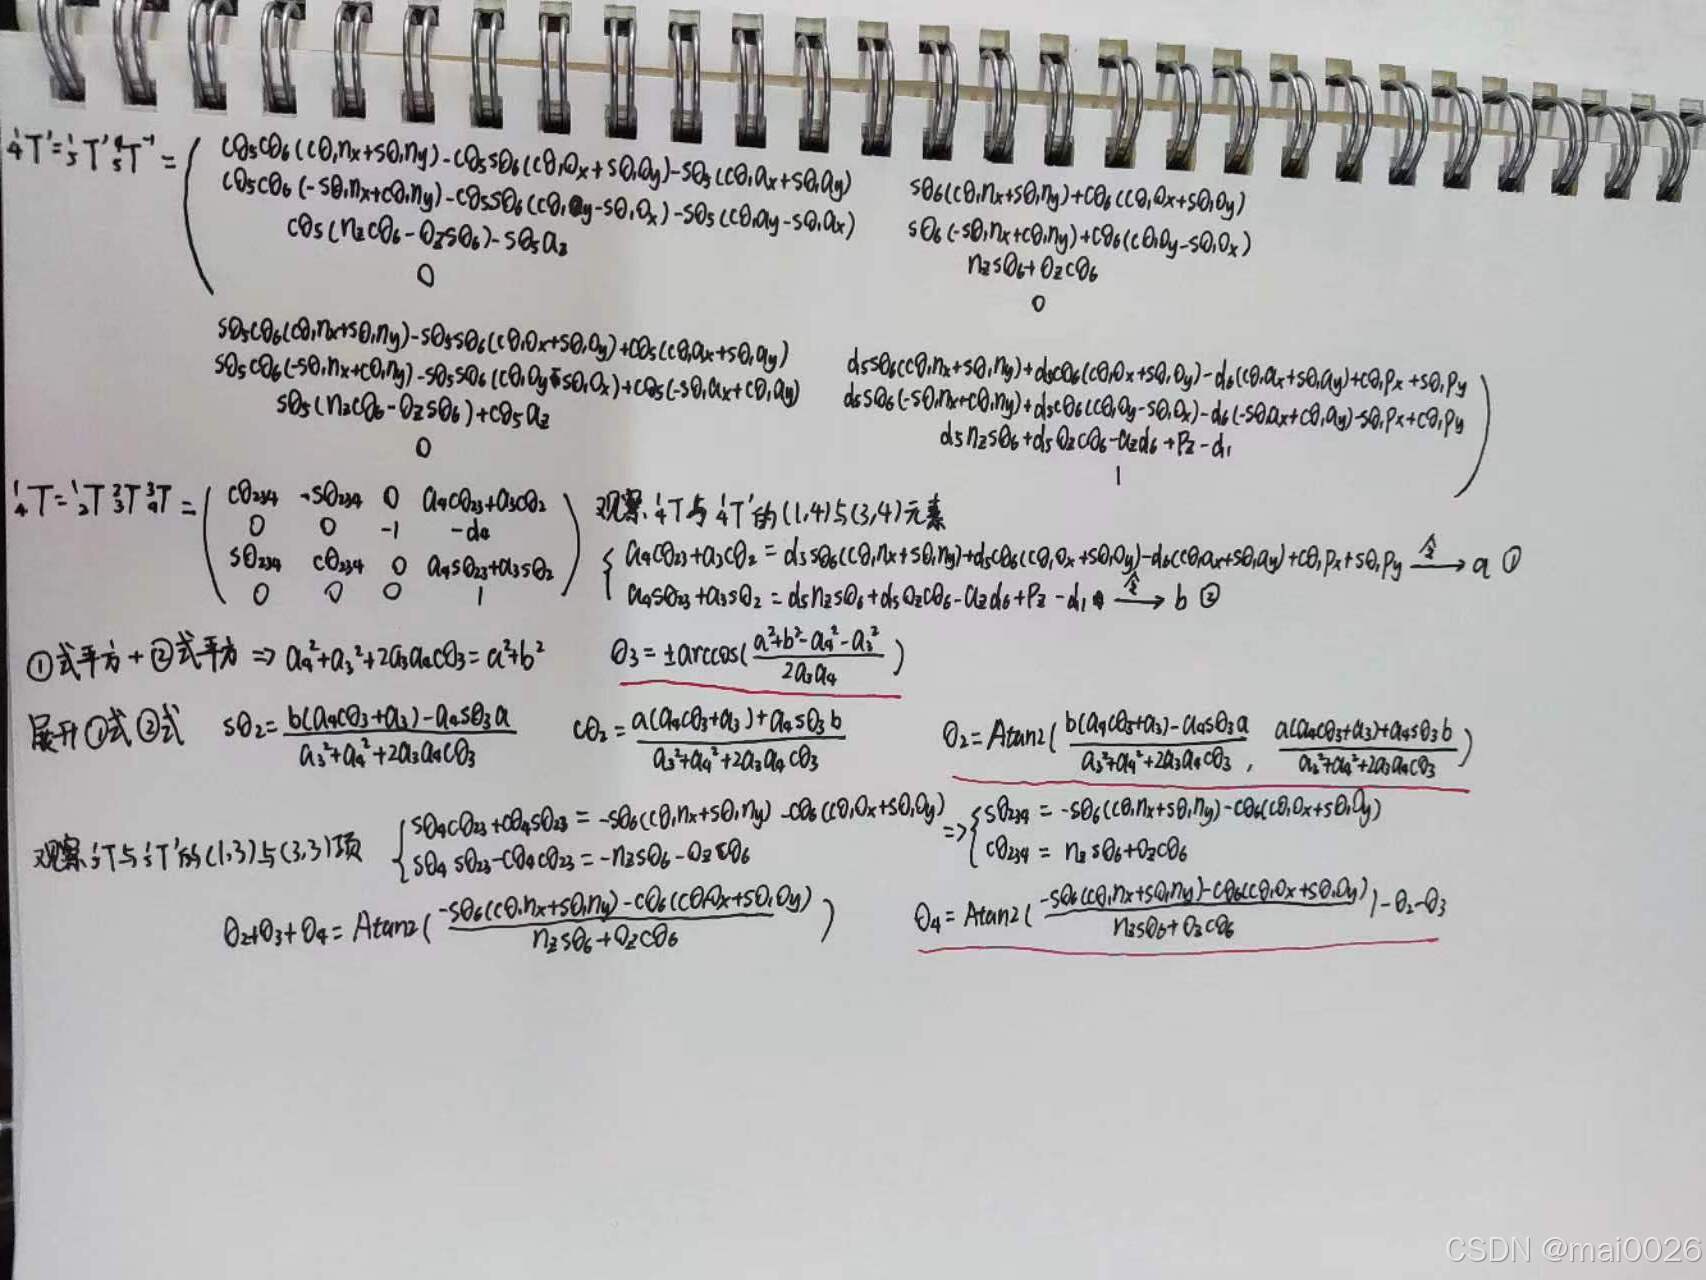 ¹₄T' = ¹₅T' ⁴₅T⁻¹ =
cθ₅cθ₆(cθ₁nₓ+sθ₁n_y)-cθ₅sθ₆(cθ₁oₓ+sθ₁o_y)-sθ₅(cθ₁aₓ+sθ₁a_y)
cθ₅cθ₆(-sθ₁nₓ+cθ₁n_y)-cθ₅sθ₆(cθ₁o_y-sθ₁oₓ)-sθ₅(cθ₁a_y-sθ₁aₓ)
cθ₅(n_zcθ₆-o_zsθ₆)-sθ₅a_z
0
sθ₆(cθ₁nₓ+sθ₁n_y)+cθ₆(cθ₁oₓ+sθ₁o_y)
sθ₆(-sθ₁nₓ+cθ₁n_y)+cθ₆(cθ₁o_y-sθ₁oₓ)
n_zsθ₆+o_zcθ₆
0
sθ₅cθ₆(cθ₁nₓ+sθ₁n_y)-sθ₅sθ₆(cθ₁oₓ+sθ₁o_y)+cθ₅(cθ₁aₓ+sθ₁a_y)
sθ₅cθ₆(-sθ₁nₓ+cθ₁n_y)-sθ₅sθ₆(cθ₁o_y-sθ₁oₓ)+cθ₅(-sθ₁aₓ+cθ₁a_y)
sθ₅(n_zcθ₆-o_zsθ₆)+cθ₅a_z
0
d₅sθ₆(cθ₁nₓ+sθ₁n_y)+d₅cθ₆(cθ₁oₓ+sθ₁o_y)-d₆(cθ₁aₓ+sθ₁a_y)+cθ₁pₓ+sθ₁p_y
d₅sθ₆(-sθ₁nₓ+cθ₁n_y)+d₅cθ₆(cθ₁o_y-sθ₁oₓ)-d₆(-sθ₁aₓ+cθ₁a_y)-sθ₁pₓ+cθ₁p_y
d₅n_zsθ₆+d₅o_zcθ₆-a_zd₆+p_z-d₁
1
¹₄T = ¹₂T ²₃T ³₄T =
cθ₂₃₄ -sθ₂₃₄ 0 a₄cθ₂₃+a₃cθ₂
0 0 -1 -d₄
sθ₂₃₄ cθ₂₃₄ 0 a₄sθ₂₃+a₃sθ₂
0 0 0 1
观察¹₄T与¹₄T'的(1,4)与(3,4)元素
a₄cθ₂₃+a₃cθ₂ = d₅sθ₆(cθ₁nₓ+sθ₁n_y)+d₅cθ₆(cθ₁oₓ+sθ₁o_y)-d₆(cθ₁aₓ+sθ₁a_y)+cθ₁pₓ+sθ₁p_y 令→ a ①
a₄sθ₂₃+a₃sθ₂ = d₅n_zsθ₆+d₅o_zcθ₆-a_zd₆+p_z-d₁ 令→ b ②
①式平方+②式平方 ⇒ a₄²+a₃²+2a₃a₄cθ₃=a²+b² θ₃=±arccos((a²+b²-a₄²-a₃²)/(2a₃a₄))
展开①式②式 sθ₂=(b(a₄cθ₃+a₃)-a₄sθ₃a)/(a₃²+a₄²+2a₃a₄cθ₃) cθ₂=(a(a₄cθ₃+a₃)+a₄sθ₃b)/(a₃²+a₄²+2a₃a₄cθ₃) θ₂=Atan2((b(a₄cθ₃+a₃)-a₄sθ₃a)/(a₃²+a₄²+2a₃a₄cθ₃), (a(a₄cθ₃+a₃)+a₄sθ₃b)/(a₃²+a₄²+2a₃a₄cθ₃))
观察¹₅T与¹₅T'的(1,3)与(3,3)项
sθ₄cθ₂₃+cθ₄sθ₂₃ = -sθ₆(cθ₁nₓ+sθ₁n_y)-cθ₆(cθ₁oₓ+sθ₁o_y)
sθ₄sθ₂₃-cθ₄cθ₂₃ = -n_zsθ₆-o_zcθ₆
⇒ sθ₂₃₄ = -sθ₆(cθ₁nₓ+sθ₁n_y)-cθ₆(cθ₁oₓ+sθ₁o_y)
cθ₂₃₄ = n_zsθ₆+o_zcθ₆
θ₂+θ₃+θ₄=Atan2((-sθ₆(cθ₁nₓ+sθ₁n_y)-cθ₆(cθ₁oₓ+sθ₁o_y))/(n_zsθ₆+o_zcθ₆))
θ₄=Atan2((-sθ₆(cθ₁nₓ+sθ₁n_y)-cθ₆(cθ₁oₓ+sθ₁o_y))/(n_zsθ₆+o_zcθ₆))-θ₂-θ₃
CSDN @mai0026